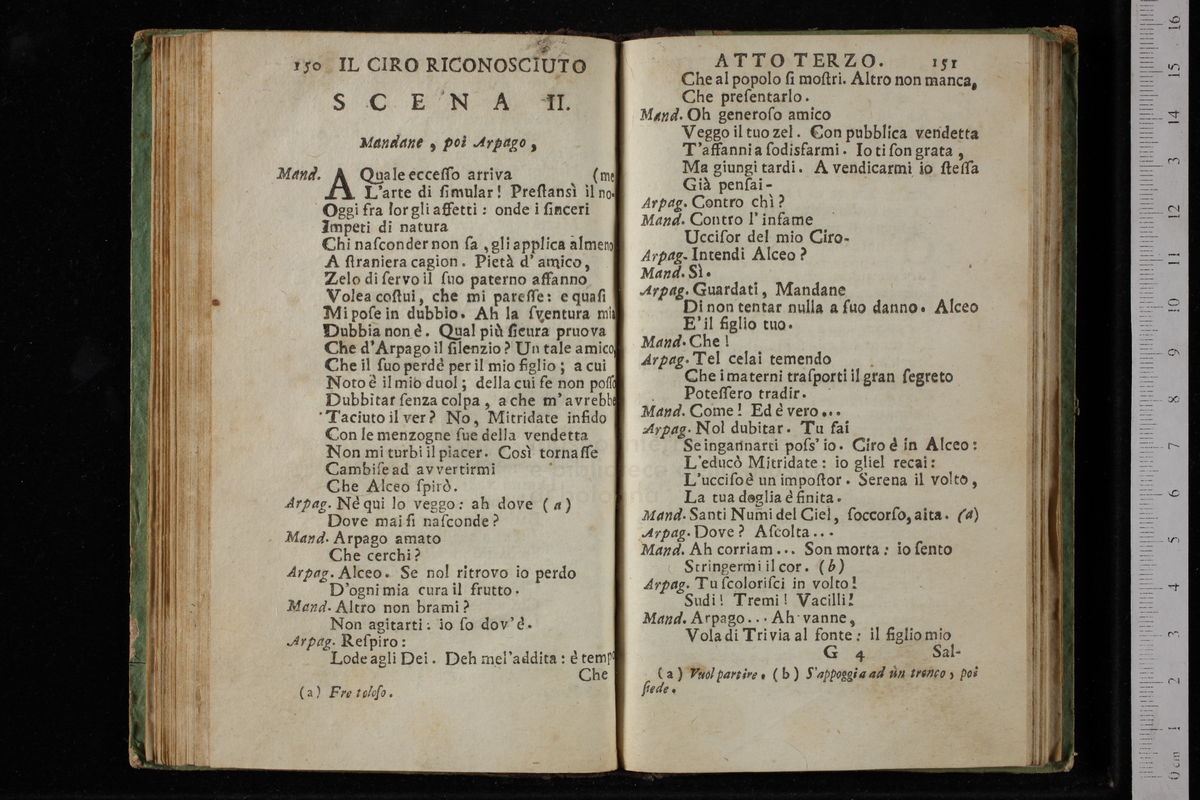 150 IL CIRO RICONOSCIUTO
SCENA II.
Mandane, poi Arpago,
Mand. A Quale eccesso arriva (me
L'arte di simular! Prestansì il no-
Oggi fra lor gli affetti: onde i sinceri
Impeti di natura
Chi nasconder non sa, gli applica almeno
A straniera cagion. Pietà d'amico,
Zelo di servo il suo paterno affanno
Volea costui, che mi paresse: e quasi
Mi pose in dubbio. Ah la sventura mia
Dubbia non è. Qual più sicura pruova
Che d'Arpago il silenzio? Un tale amico,
Che il suo perdè per il mio figlio; a cui
Noto è il mio duol; della cui fe non posso
Dubbitar senza colpa, a che m'avrebbe
Taciuto il ver? No, Mitridate infido
Con le menzogne sue della vendetta
Non mi turbi il piacer. Così tornasse
Cambise ad avvertirmi
Che Alceo spirò.
Arpag. Nè qui lo veggo: ah dove (a)
Dove mai si nasconde?
Mand. Arpago amato
Che cerchi?
Arpag. Alceo. Se nol ritrovo io perdo
D'ogni mia cura il frutto.
Mand. Altro non brami?
Non agitarti: io so dov'è.
Arpag. Respiro:
Lode agli Dei. Deh mel'addita: è tempo
Che
(a) Fretoloso.
ATTO TERZO. 151
Che al popolo si mostri. Altro non manca,
Che presentarlo.
Mand. Oh generoso amico
Veggo il tuo zel. Con pubblica vendetta
T'affanni a sodisfarmi. Io ti son grata,
Ma giungi tardi. A vendicarmi io stessa
Già pensai-
Arpag. Contro chì?
Mand. Contro l'infame
Uccisor del mio Ciro-
Arpag. Intendi Alceo?
Mand. Sì.
Arpag. Guardati, Mandane
Di non tentar nulla a suo danno. Alceo
E' il figlio tuo.
Mand. Che!
Arpag. Tel celai temendo
Che i materni trasporti il gran segreto
Potessero tradir.
Mand. Come! Ed è vero...
Arpag. Nol dubitar. Tu fai
Se ingannarti poss'io. Ciro è in Alceo:
L'educò Mitridate: io gliel recai:
L'ucciso è un impostor. Serena il volto,
La tua doglia è finita.
Mand. Santi Numi del Ciel, soccorso, aita. (a)
Arpag. Dove? Ascolta...
Mand. Ah corriam... Son morta: io sento
Stringermi il cor. (b)
Arpag. Tu scolorisci in volto!
Sudi! Tremi! Vacilli!
Mand. Arpago... Ah vanne,
Vola di Trivia al fonte: il figlio mio
G 4 Sal-
(a) Vuol partire. (b) S'appoggia ad ùn tronco, poi
siede.
0 cm 1 2 3 4 5 6 7 8 9 10 11 12 13 14 15 16